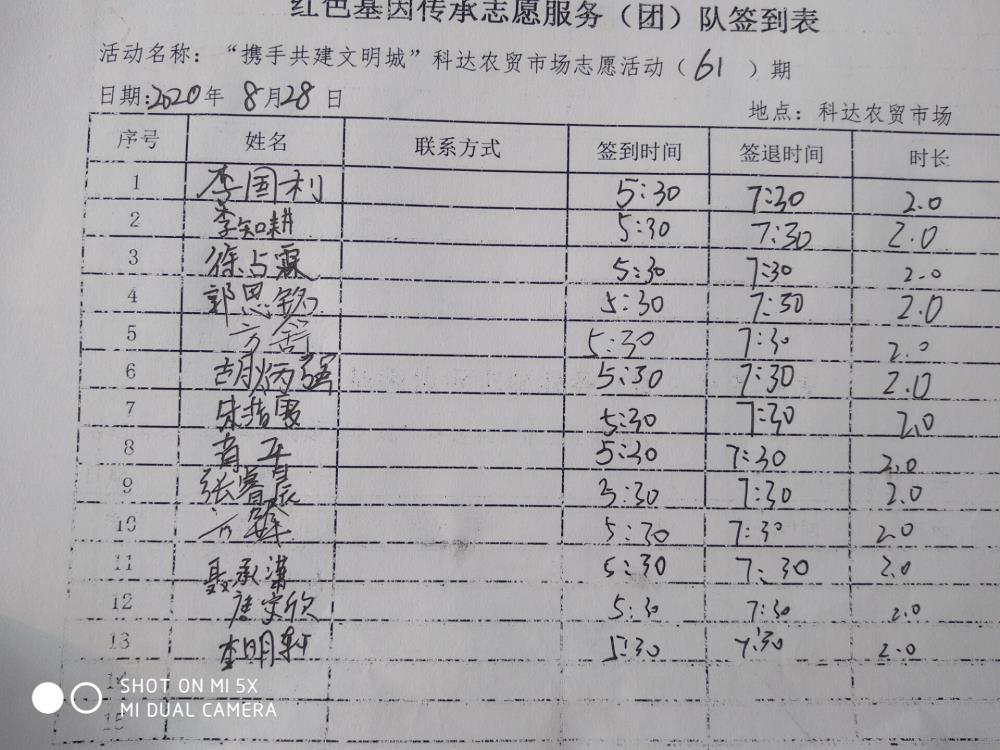 红色基因传承志愿服务（团）队签到表
活动名称：“携手共建文明城”科达农贸市场志愿活动（61）期
日期:2020年 8月28日
地点：科达农贸市场
序号 姓名 联系方式 签到时间 签退时间 时长
1 李国利 5:30 7:30 2.0
2 李知耕 5:30 7:30 2.0
3 徐占霖 5:30 7:30 2.0
4 郭思铭 5:30 7:30 2.0
5 方舒 5:30 7:30 2.0
6 胡炳强 5:30 7:30 2.0
7 5:30 7:30 2.0
8 5:30 7:30 2.0
9 张睿晨 5:30 7:30 2.0
10 5:30 7:30 2.0
11 聂承潇 5:30 7:30 2.0
12 5:30 7:30 2.0
13 李明轩 5:30 7:30 2.0
14
15
SHOT ON MI 5X
MI DUAL CAMERA